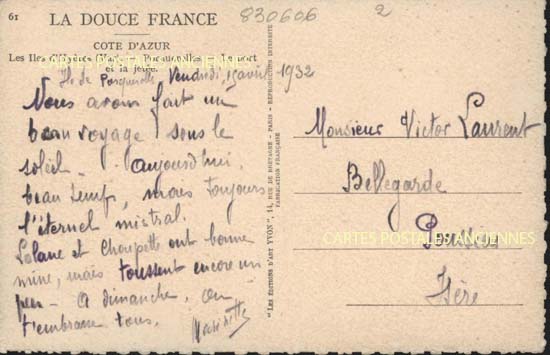 61
LA DOUCE FRANCE
830606
2
COTE D'AZUR
Les Iles d'Hyères (Var) Porquerolles Le port
et la jetée.
Ile de Porquerolles Vendredi 15 avril 1932
Nous avons fait un
beau voyage sous le
soleil. aujourd'hui
beau temps, mais toujours
l'éternel mistral.
et Choupette ont bonne
mine, mais toussent encore un
peu - A dimanche. On
t'embrasse tous.
"LES ÉDITIONS D'ART YVON", 14, RUE DE BRETAGNE - PARIS - REPRODUCTION INTERDITE
FABRICATION FRANÇAISE
Monsieur Victor Laurent
Bellegarde
Isère
CARTES POSTALES ANCIENNES